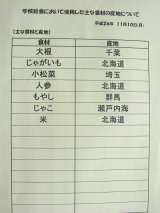 学校給食において使用した主な食材の産地について
平成24年 11月10日(月)
(主な食材と産地)
食材 産地
大根 千葉
じゃがいも 北海道
小松菜 埼玉
人参 北海道
もやし 群馬
じゃこ 瀬戸内海
米 北海道